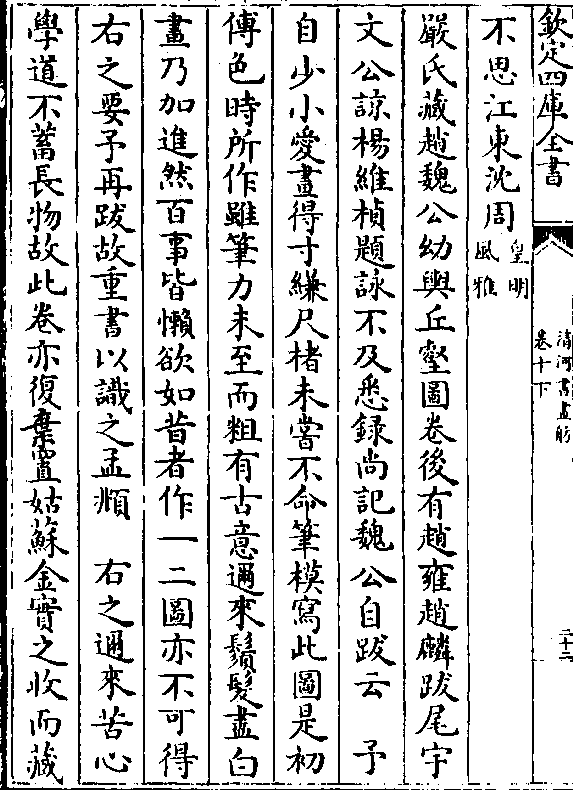 欽定四庫全書
清河書畫舫
卷十下
二十二
不思江東沈周皇明
風雅
嚴氏藏趙魏公幼輿丘壑圖卷後有趙雍趙麟跋尾宇
文公諒楊維楨題詠不及悉錄尚記魏公自跋云　予
自少小愛畫得寸縑尺楮未嘗不命筆模寫此圖是初
傅色時所作雖筆力未至而粗有古意邇來鬚髮盡白
畫乃加進然百事皆懶欲如昔者作一二圖亦不可得
右之要予再跋故重書以識之孟頫　右之邇來苦心
學道不蓄長物故此卷亦復棄置姑蘇金寶之收而藏